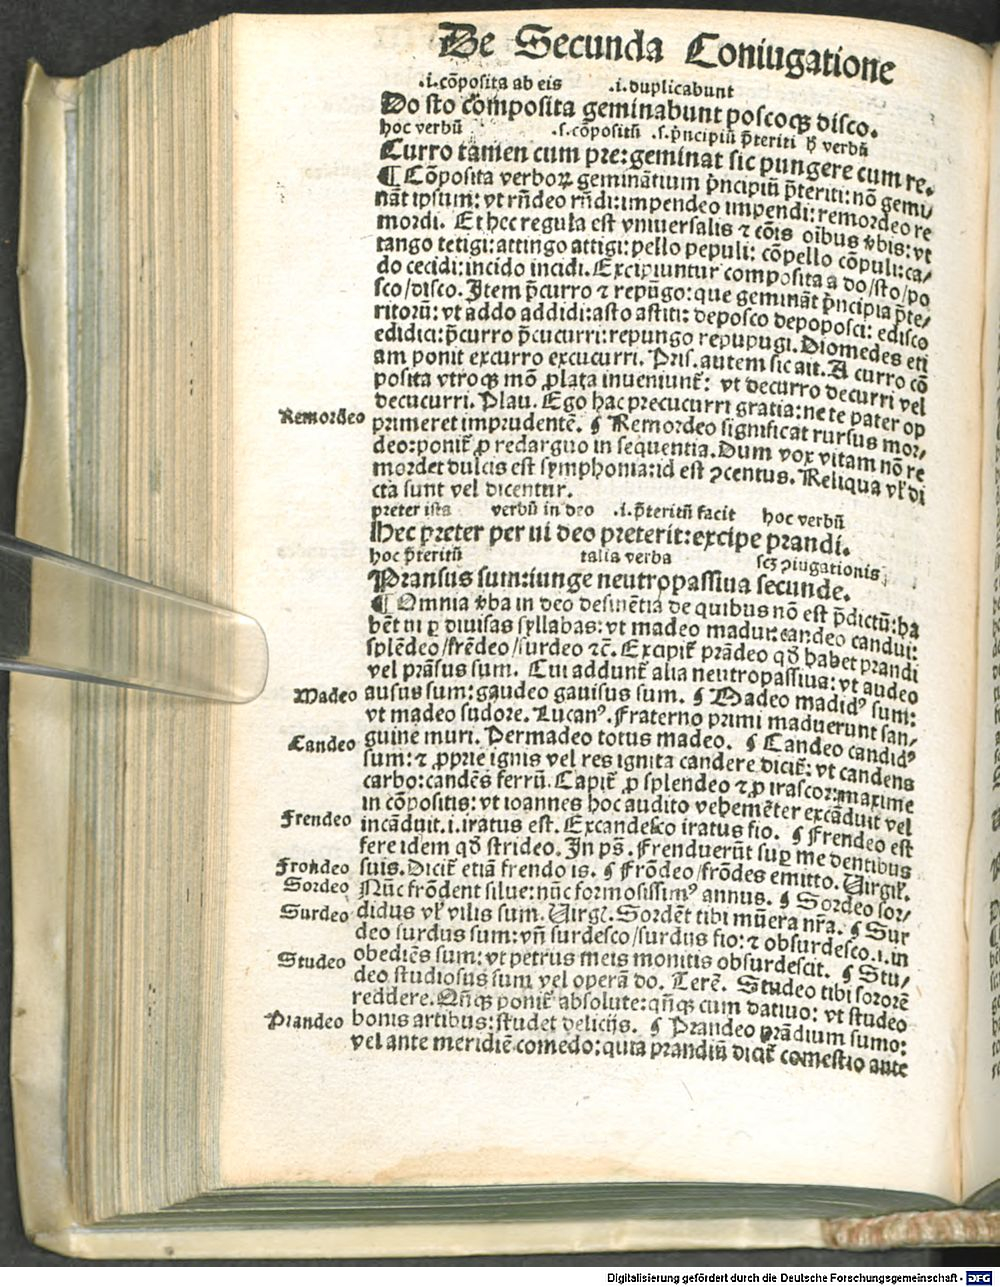 De Secunda Coniugatione
.i. cōposita ab eis .i. duplicabunt
Do sto composita geminabunt poscoqꝫ disco.
hoc verbū .s. cōpositū .s. p̄ncipiū p̄teriti hͦ verbū
Curro tamen cum pre: geminat sic pungere cum re.
¶ Cōposita verboꝝ geminātium p̄ncipiū p̄teriti: nō gemi/
nāt ipsum: vt rn̄deo rn̄di: impendeo impendi: remordeo re
mordi. Et hec regula est vniuersalis ⁊ cōis oībus v̄bis: vt
tango tetigi: attingo attigi: pello pepuli: cōpello cōpuli: ca/
do cecidi: incido incidi. Excipiuntur composita a do/sto/po
sco/disco. Item p̄curro ⁊ repūgo: que gemināt p̄ncipia p̄te/
ritorū: vt addo addidi: asto astiti: deposco depoposci: edisco
edidici: p̄curro p̄cucurri: repungo repupugi. Diomedes eti
am ponit excurro excucurri. Pris. autem sic ait. A curro cō
posita vtroqꝫ mō ꝓlata inueniunt᷑: vt decurro decurri vel
decucurri. Plau. Ego hac precucurri gratia: ne te pater op
Remordeo primeret imprudentē. ¶ Remordeo significat rursus mor/
deo: ponit᷑ ꝓ redarguo in sequentia. Dum vox vitam nō re
mordet dulcis est symphonia: id est ꝯcentus. Reliqua vl̓ di
cta sunt vel dicentur.
preter ista verbū in deo .i. p̄teritū facit hoc verbū
Hec preter per ui deo preterit: excipe prandi.
hoc p̄teritū talia verba scꝫ ꝯiugationis
Pransus sum: iunge neutropassiua secunde.
¶ Omnia v̄ba in deo desinētia de quibus nō est p̄dictū: ha
bēt ui ꝑ diuisas syllabas: vt madeo madui: candeo candui:
splēdeo/frēdeo/surdeo ⁊c̄. Excipit᷑ prādeo qd̄ habet prandi
vel prāsus sum. Cui addunt᷑ alia neutropassiua: vt audeo
Madeo ausus sum: gaudeo gauisus sum. ¶ Madeo madidꝰ sum:
vt madeo sudore. Lucanꝰ. Fraterno primi maduerunt san/
Candeo guine muri. Permadeo totus madeo. ¶ Candeo candidꝰ
sum: ⁊ ꝓprie ignis vel res ignita candere dicit᷑: vt candens
carbo: candēs ferrū. Capit᷑ ꝓ splendeo ⁊ ꝓ irascor: maxime
in cōpositis: vt ioannes hoc audito vehemēter excāduit vel
Frendeo incāduit .i. iratus est. Excandesco iratus fio. ¶ Frendeo est
fere idem qd̄ strideo. In ps̄. Frenduerūt suꝑ me dentibus
Frondeo suis. Dicit᷑ etiā frendo is. ¶ Frōdeo/frōdes emitto. Virgil̓.
Sordeo Nūc frōdent silue: nūc formosissimꝰ annus. ¶ Sordeo sor/
Surdeo didus vl̓ vilis sum. Virgl̓. Sordēt tibi mūera nr̄a. ¶ Sur
deo surdus sum: vn̄ surdesco/surdus fio: ⁊ obsurdesco .i. in
Studeo obediēs sum: vt petrus meis monitis obsurdescit. ¶ Stu/
deo studiosus sum vel operā do. Terē. Studeo tibi sororē
reddere. Qn̄qꝫ ponit᷑ absolute: qn̄qꝫ cum datiuo: vt studeo
Prandeo bonis artibus: studet delicijs. ¶ Prandeo prādium sumo:
vel ante meridiē comedo: quia prandiū dicit᷑ comestio ante
Digitalisierung gefördert durch die Deutsche Forschungsgemeinschaft - DFG